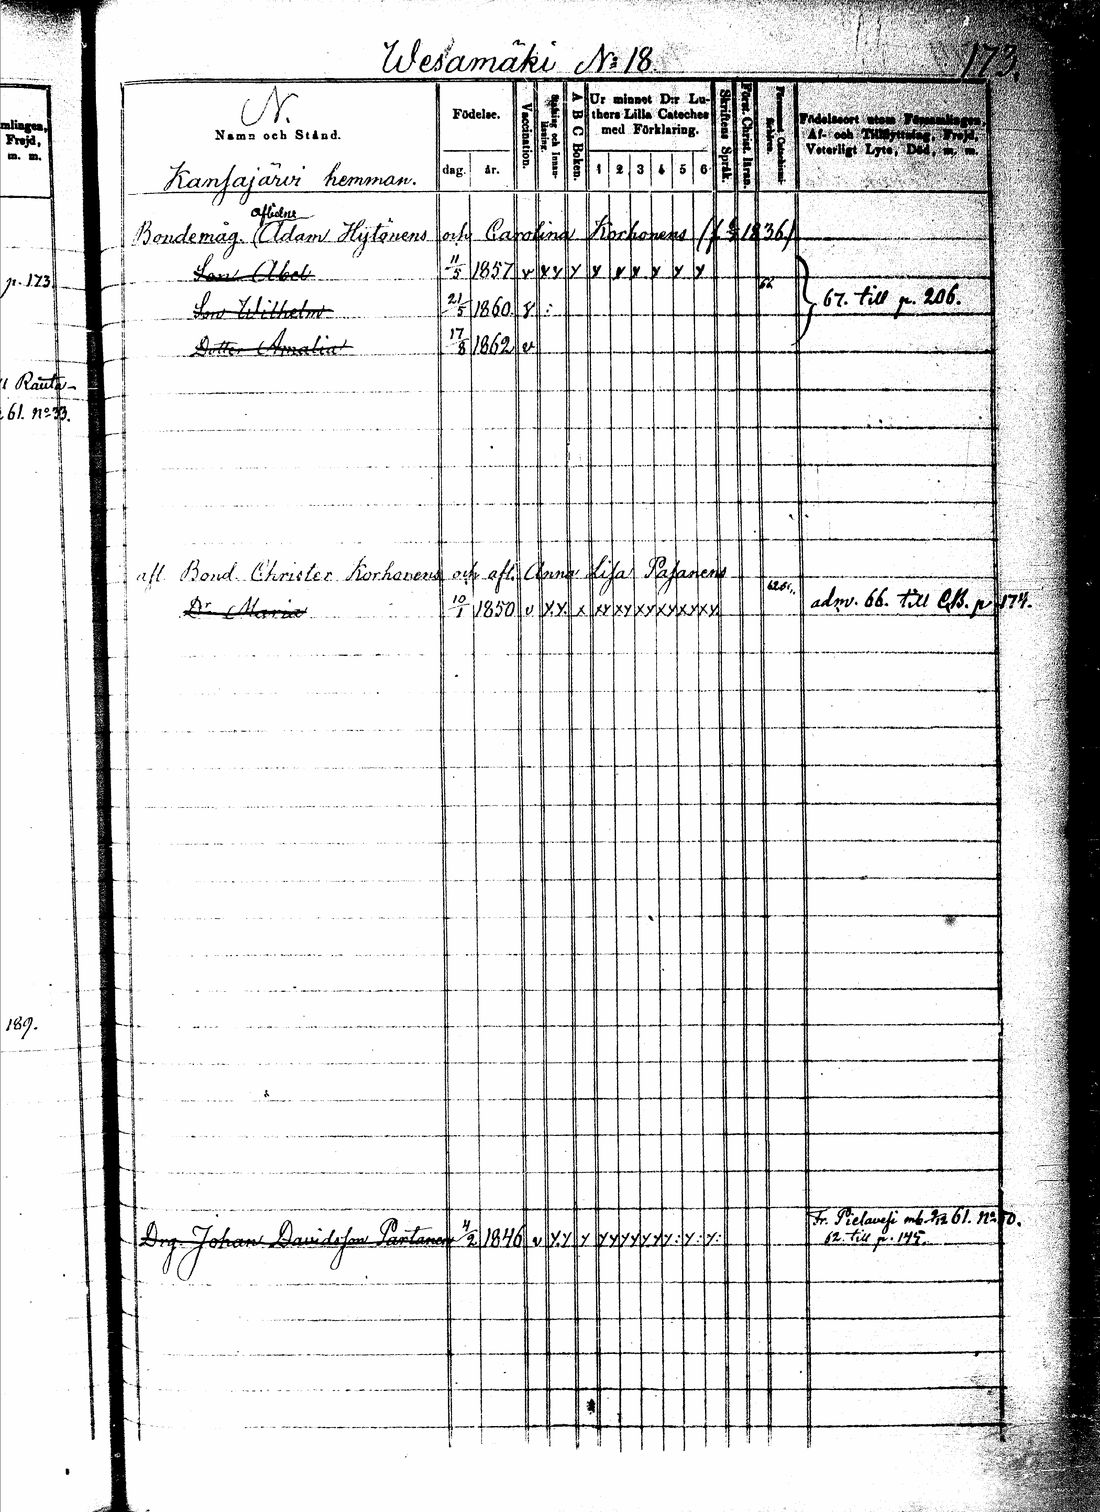 Wesamäki No 18.
173.
mlingen,
Frejd,
m. m.
N.
Namn och Stånd.
Kansajärvi hemman.
Födelse.
dag. år.
Vaccination.
A B C Boken.
Ur minnet D:r Lu-
thers Lilla Cateches
med Förklaring.
1 2 3 4 5 6
Skriftens Språk.
Först. Christ. läran.
Födelseort utom Församlingen,
Af- och Tillflyttning, Frejd,
Veterligt Lyte, Död, m. m.
aflidne
Bondemåg. Adam Hytönens och Carolina Korhonens (f. 1836)
Son Abel 11/5 1857 v x y y y y y y y y
p. 173
Son Wilhelm 21/5 1860 y :
67. till p. 206.
Dotter Amalia 17/8 1862 v
Rauta-
61. No 33.
afl. Bond. Christer Korhonens och afl. Anna Lisa Pasanens
Dr Maria 10/1 1850 v x x x xx xx xx xx xx xx
adm. 66. till C.B. p. 174.
189.
Drg. Johan Davidsson Partanen 4/2 1846 v y y y y y y y y y y : y : y :
Fr. Pielavesi mb. 61. No
62. till p. 145.